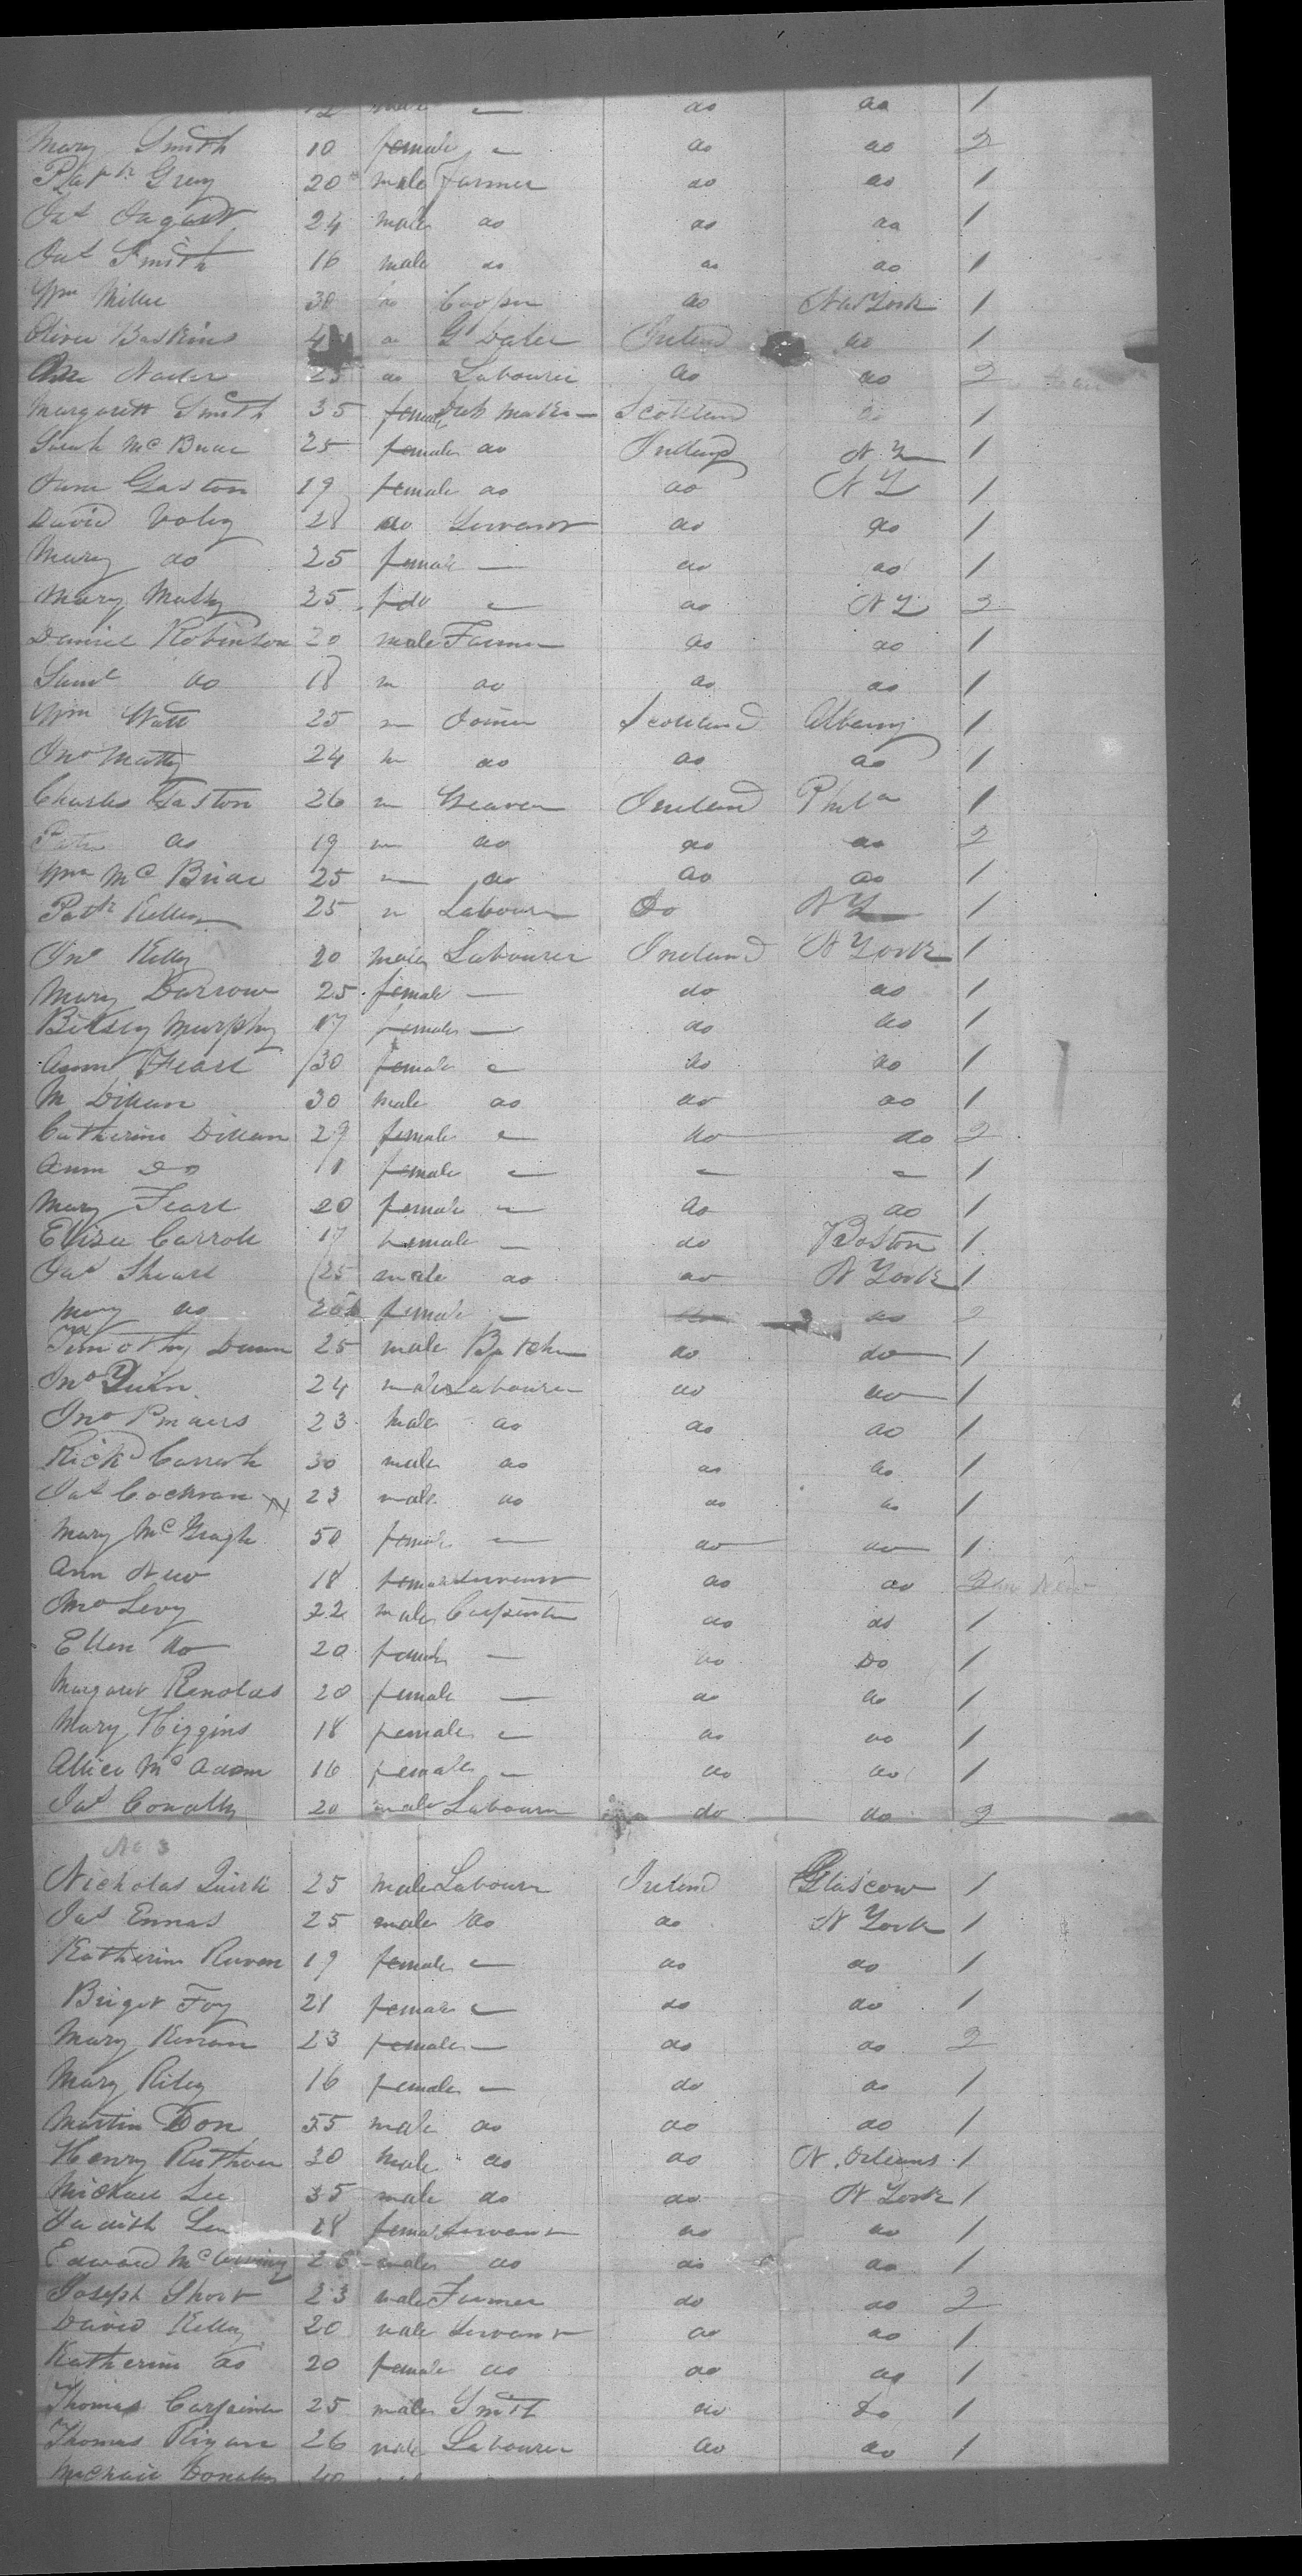 12 male — do do 1
Mary Smith 10 female — do do 2
Patk Gray 20 male farmer do do 1
Jas 24 male do do do 1
Jas Smith 16 male do do do 1
Wm Miller 30 do Cooper do New York 1
Oliver Baskins do Ireland do 1
25 do Labourer do do 2
Margarett Smith 35 female maker — Scotland do 1
Sarah Mc Briac 25 female do Ireland N Y 1
Jane Gaston 19 female do do N Y 1
David 28 do Servant do do 1
Mary do 25 female — do do 1
Mary Matty 25 f do — do N Y 2
Daniel Robinson 20 male Farmer do do 1
Saml do 18 m do do do 1
Wm Watt 25 m Joiner Scotland Albany 1
Jno Matty 24 m do do do 1
Charles Gaston 26 m Weaver Ireland Phila 1
do 19 m do do do 2
Wm Mc Briac 25 m do do do 1
Patk Kelly 25 m Labourer Do N Y 1
Jno Kelly 20 male Labourer Ireland N York 1
Mary Darrow 25 female — do do 1
Betsey Murphy 17 female — do do 1
Ann Fearl 30 female — do do 1
M Dillan 30 male do do do 1
Catherine Dillan 29 female — do do 2
Ann Do 11 female — — — 1
Mary Fearl 20 female — do do 1
Eliza Carroll 17 female — do Boston 1
Jas 25 male do do N York 1
Mary do 20 female — do do 2
Timothy Dunn 25 male Butcher do do 1
Jno Quin 24 male Labourer do do 1
Jno 23 male do do do 1
Richd 30 male do do do 1
Jas Cochran 23 male do do do 1
Mary Mc Gragh 50 female — do do 1
Ann New 18 female Servant do do 2 Ann New
Jno Levy 22 male Carpenter do do 1
Ellen do 20 female — do Do 1
Margaret Renolds 20 female — do do 1
Mary Higgins 18 female — do do 1
Allice Mc Adam 16 female — do do 1
Jas Conolly 20 male Labourer do do 2
No 3
Nicholas Quirk 25 male Labourer Ireland Glascow 1
Jas Ennas 25 male do do N York 1
Katherine Ruvan 19 female — do do 1
Briget Foy 21 female — do do 1
Mary Kernan 23 female — do do 2
Mary Riley 16 female — do do 1
Martin Don 55 male do do do 1
Henry Ruthven 30 male do do N. Orleans 1
Michael Lee 35 male do do N York 1
Judith Lee 28 female Servant do do 1
Edward Mc 25 male do do do 1
Joseph Short 23 male Farmer do do 2
David Kelly 20 male Servant do do 1
Katherine do 20 female do do do 1
Thomas Carpenter 25 male Smith do Do 1
Thomas 26 male Labourer do do 1
Michael 40